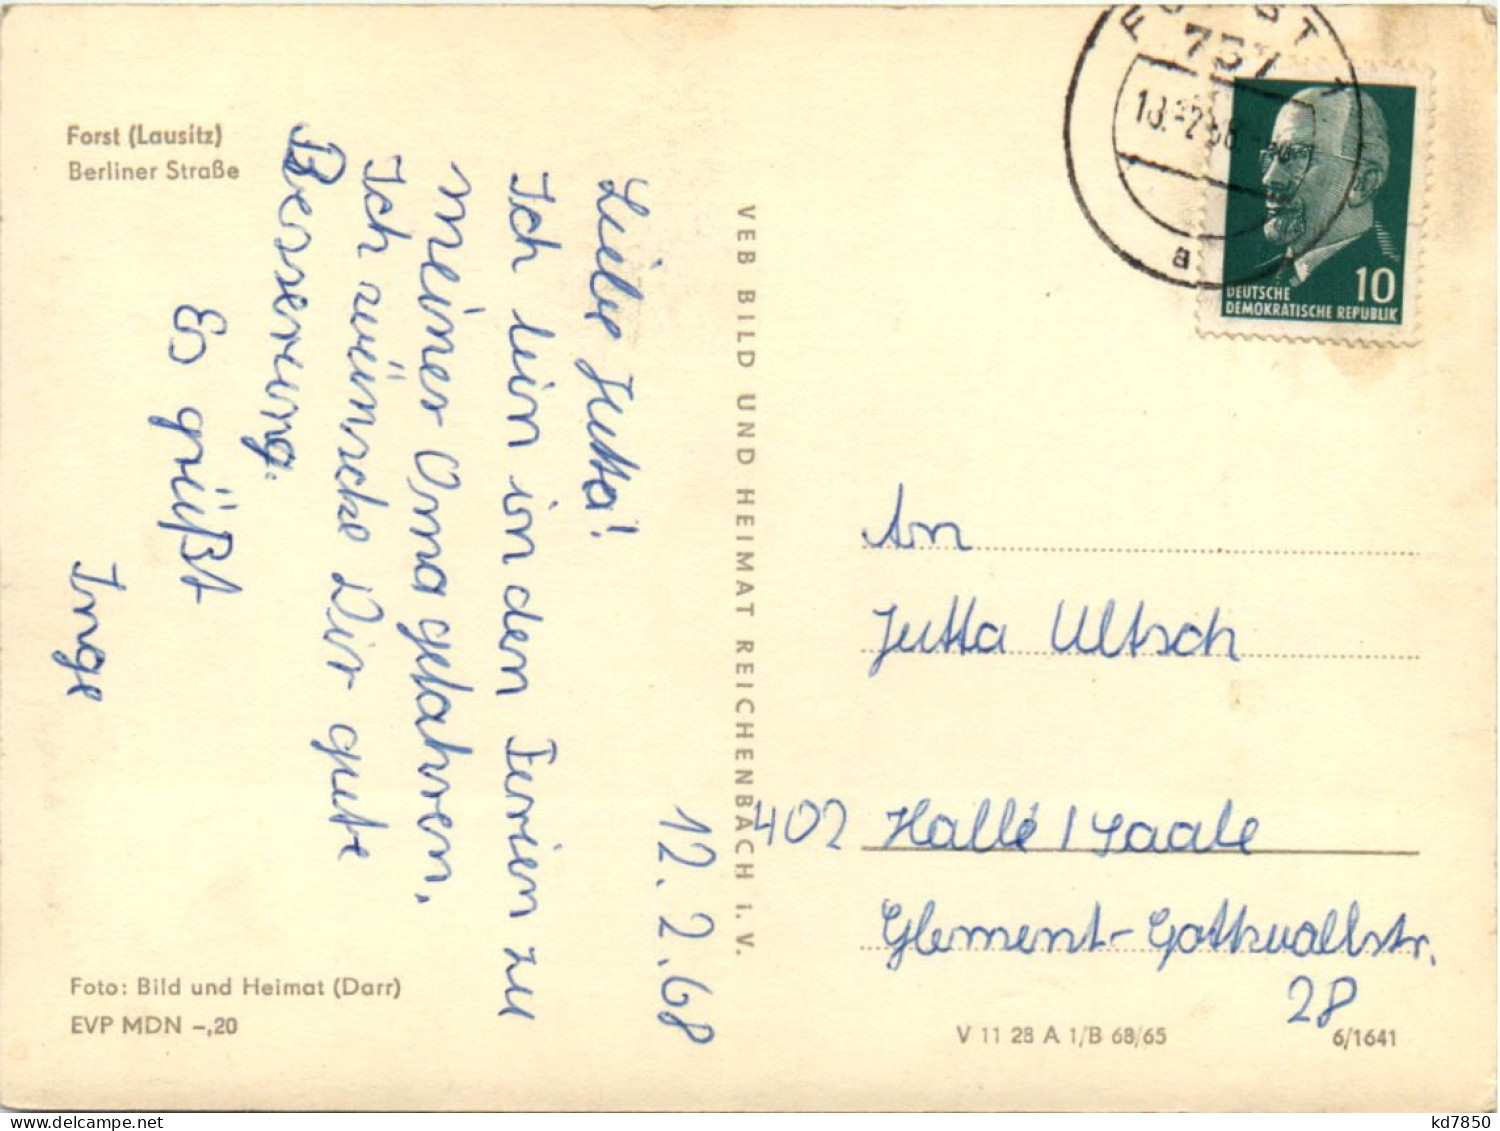 Forst (Lausitz)
Berliner Straße
12.2.68
Liebe Jutta!
Ich bin in den Ferien zu
meiner Oma gefahren.
Ich wünsche Dir gute
Besserung.
Es grüßt
Inge
Foto: Bild und Heimat (Darr)
EVP MDN –,20
VEB BILD UND HEIMAT REICHENBACH i. V.
FORST 1
757
a
10
DEUTSCHE
DEMOKRATISCHE REPUBLIK
An
Jutta Ultsch
402 Halle / Saale
Clement-Gottwaldstr.
28
V 11 28 A 1/B 68/65
6/1641
kd7850